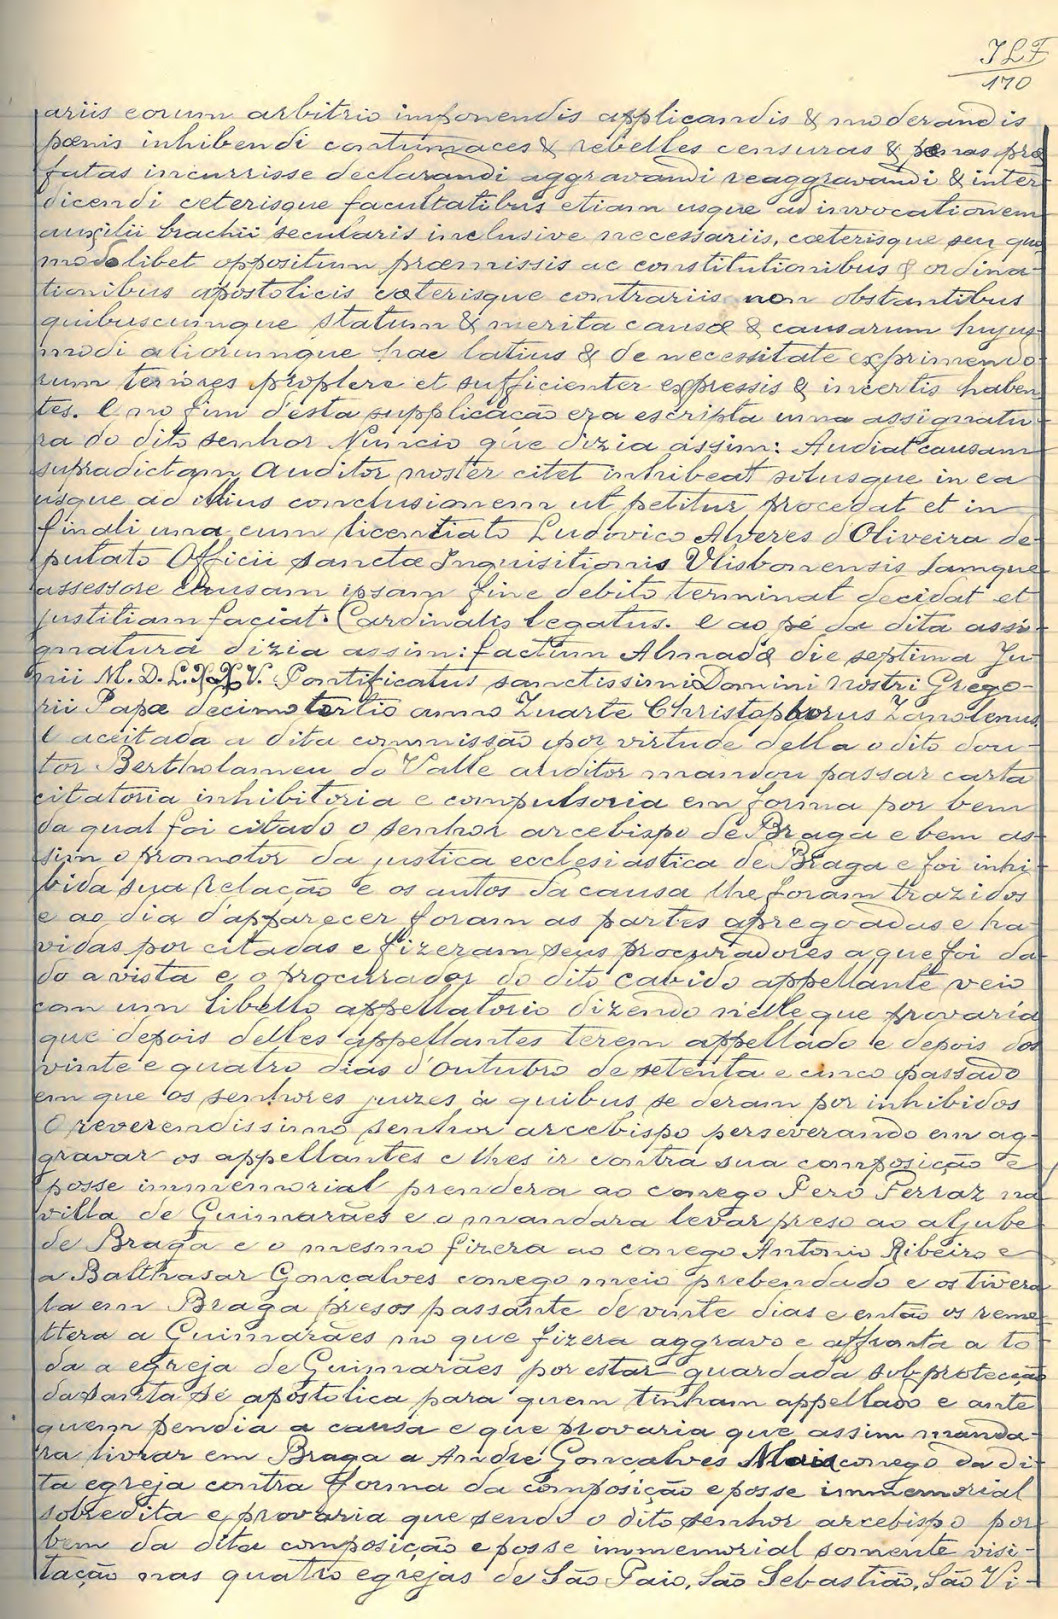 JLF
170
ariis eorum arbitrio imponendis applicandis & moderandis
pœnis inhibendi contumaces & rebelles censuras & penas præ
fatas incurrisse declarandi aggravandi reaggravandi & inter-
dicendi ceterisque facultatibus etiam usque ad invocationem
auxilii brachii secularis inclusive necessariis, cæterisque seu quo
modolibet oppositum præmissis ac constitutionibus & ordina-
tionibus apostolicis cæterisque contrariis non obstantibus
quibuscumque statum & merita causæ & causarum hujus
modi aliorumque hac latius & de necessitate exprimendo-
rum teriores proplere et sufficienter expressis & incertis haben
tes. E no fim d'esta supplicação era escripta uma assignatu-
ra do dito senhor Nuncio que dizia assim: Audiat causam
supradictam Auditor noster citet inhibeat solusque in ea
usque ad illius conclusionem ut petitur procedat et in
finali una cum licentiato Ludovico Alveres d'Oliveira de-
putato Officii sanctæ Inquisitionis Ulisbonensis tamque
assessore causam ipsam fine debito terminat decidat et
justitiam faciat. Cardinalis legatus. E ao pé da dita assi-
gnatura dizia assim: factum Almadæ die septima Ju-
nii M.D.L.XX.V. Pontificatus sanctissimi Domini Nostri Grego-
rii Papæ decimo tertio anno Zuarte Christophorus Zamolenus
E aceitada a dita commissão por virtude della o dito dou-
tor Bertholameu do Valle auditor mandou passar carta
citatoria inhibitoria e compulsoria em forma por bem
da qual foi citado o senhor arcebispo de Braga e bem as-
sim o promotor da justica ecclesiastica de Braga e foi inhi-
bida sua Relação e os autos da causa lhe foram trazidos
e ao dia d'apparecer foram as partes apregoadas e ha-
vidas por citadas e fizeram seus procuradores a que foi da-
do a vista e o procurador do dito cabido appellante veio
com um libello appellatorio dizendo n'elle que provaria
que depois delles appellantes terem appellado e depois dos
vinte e quatro dias d'Outubro de setenta e cinco passado
em que os senhores juizes à quibus se deram por inhibidos
O reverendissimo senhor arcebispo perseverando em ag-
gravar os appellantes e lhes ir contra sua composição e
posse immemorial prendera ao conego Pero Ferraz na
villa de Guimarães e o mandara levar preso ao aljube
de Braga e o mesmo fizera ao conego Antonio Ribeiro e
a Balthasar Gonçalves conego meio prebendado e os tivera
la em Braga presos passante de vinte dias e então os reme-
ttera a Guimarães no que fizera aggravo e affronta a to-
da a egreja de Guimarães por estar guardada sob protecção
da santa sé apostolica para quem tinham appellado e ante
quem pendia a causa e que provaria que assim manda-
ra livrar em Braga a André Gonçalves Maia conego da di-
ta egreja contra forma da composição e posse immemorial
sobredita e provaria que sendo o dito senhor arcebispo por
bem da dita composição e posse immemorial somente visi-
tação nas quatro egrejas de São Paio, São Sebastião, São Vi-